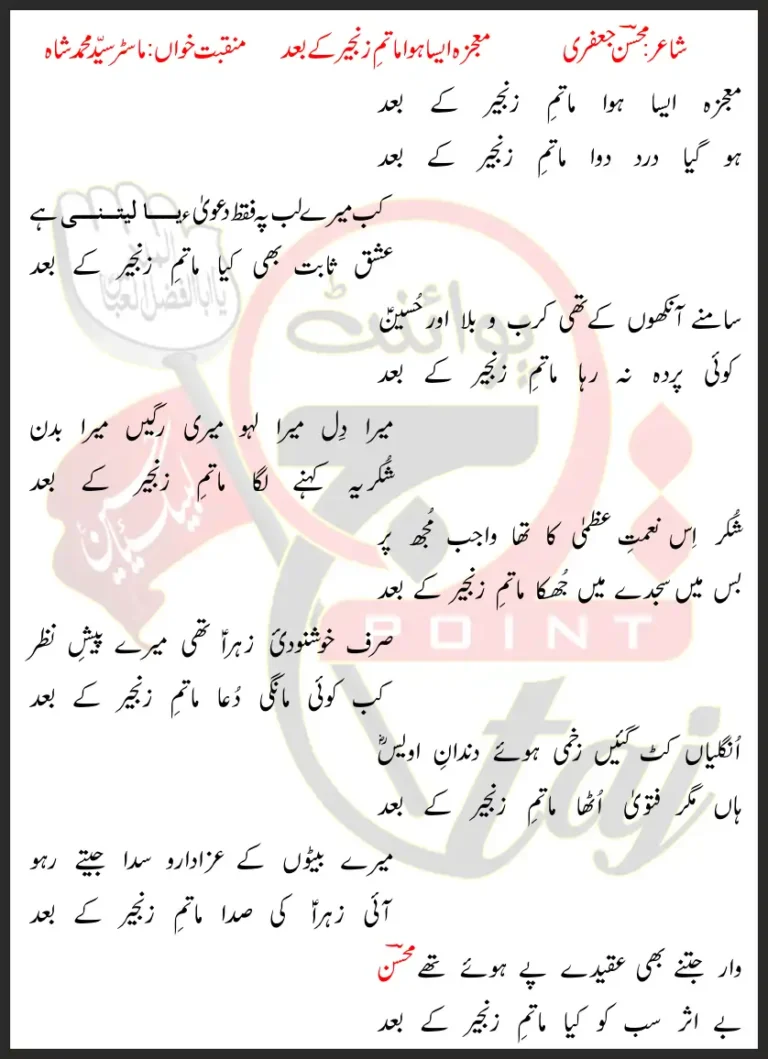 شاعر: محسنؔ جعفری معجزہ ایسا ہوا ماتمِ زنجیر کے بعد منقبت خواں: ماسٹر سیّد محمد شاہ
معجزہ ایسا ہوا ماتمِ زنجیر کے بعد
ہو گیا درد دوا ماتمِ زنجیر کے بعد
کب میرے لب پہ فقط دعویٰ ءیا لیتنی ہے
عشق ثابت بھی کیا ماتمِ زنجیر کے بعد
سامنے آنکھوں کے تھی کرب و بلا اور حُسینؑ
کوئی پردہ نہ رہا ماتمِ زنجیر کے بعد
میرا دِل میرا لہو میری رگیں میرا بدن
شُکریہ کہنے لگا ماتمِ زنجیر کے بعد
شُکر اِس نعمتِ عظمٰی کا تھا واجب مُجھ پر
بس میں سجدے میں جُھکا ماتمِ زنجیر کے بعد
صرف خوشنودیٔ زہراؑ تھی میرے پیشِ نظر
کب کوئی مانگی دُعا ماتمِ زنجیر کے بعد
اُنگلیاں کٹ گئیں زخمی ہوئے دندانِ اویسؓ
ہاں مگر فتویٰ اُٹھا ماتمِ زنجیر کے بعد
میرے بیٹوں کے عزادارو سدا جیتے رہو
آئی زہراؑ کی صدا ماتمِ زنجیر کے بعد
وار جتنے بھی عقیدے پے ہوئے تھے محسنؔ
بے اثر سب کو کیا ماتمِ زنجیر کے بعد
پوائنٹ
یا ابا الفضل العباس
لبیک یا حسین
POINT
taj